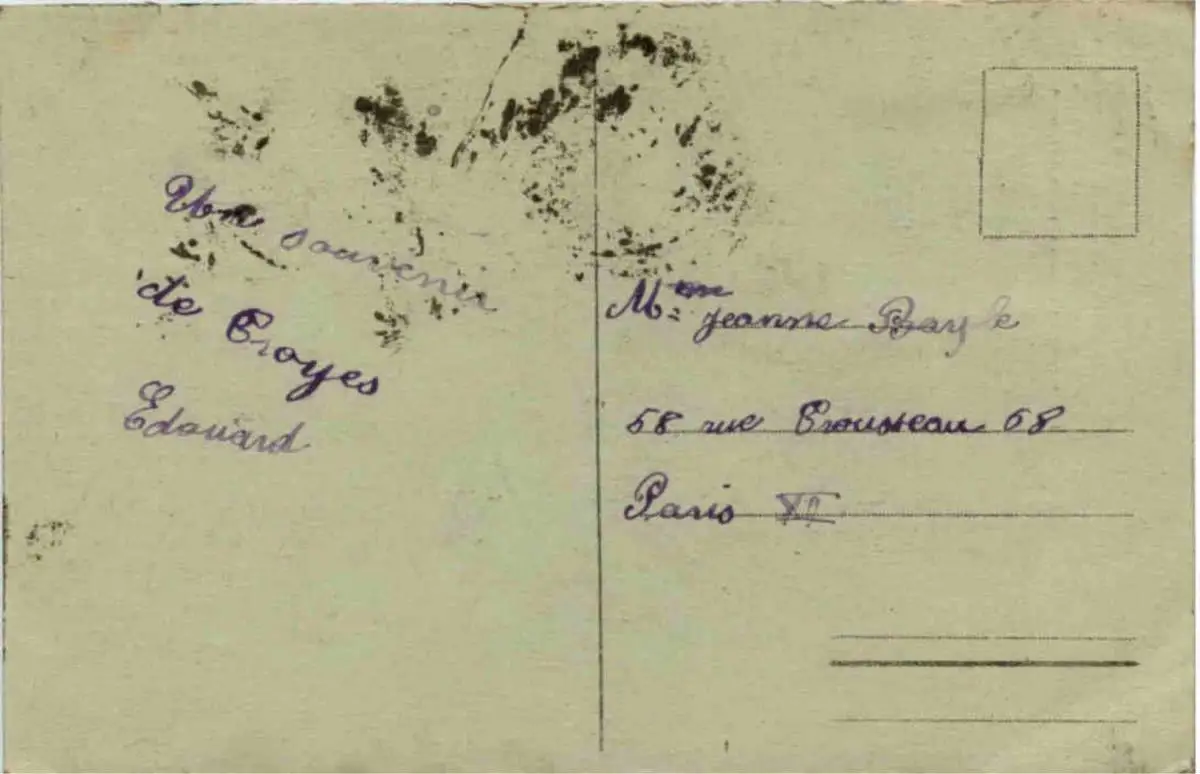 Un souvenir
de Troyes
Edouard
Mme Jeanne Bayle
58 rue Trousseau 58
Paris XI